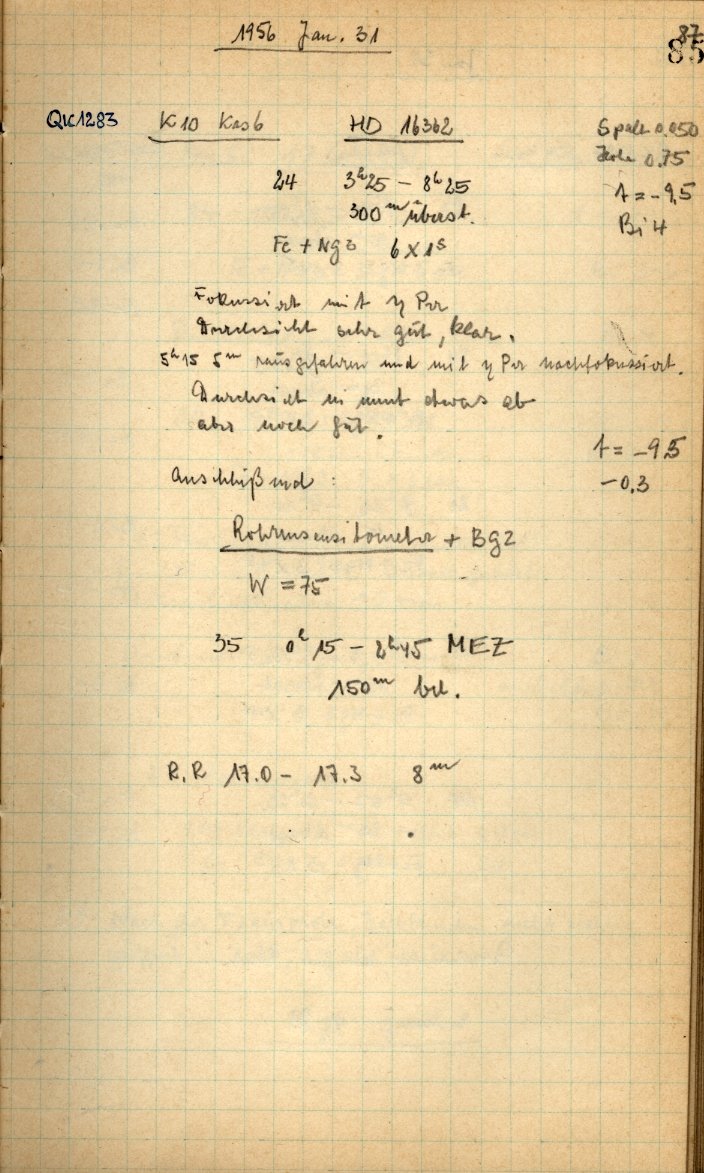 1956 Jan. 31
87
85
QK1283 K10 Kas6 HD 16362 Spalt 0.050
0.75
24 3h25 – 8h25 t = -9,5
300m überst. Bi 4
Fe + Ng3 6 x 1s
Fokussiert mit η Per
Durchsicht sehr gut, klar.
5h15 5m rausgefahren und mit η Per nachfokussiert.
Durchsicht nimmt etwas ab
aber noch gut.
t = -9.5
Anschließend : -0.3
Röhrensensitometer + BG2
W = 75
35 0h15 – 2h45 MEZ
150m bel.
R.R 17.0 – 17.3 8m